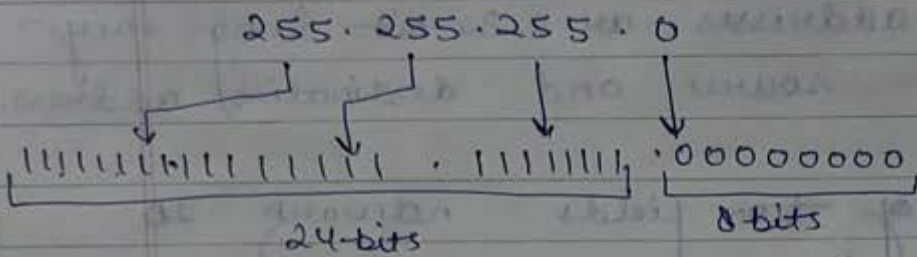 255. 255. 255. 0
11111111.11111111 . 11111111 .00000000
24-bits 8-bits